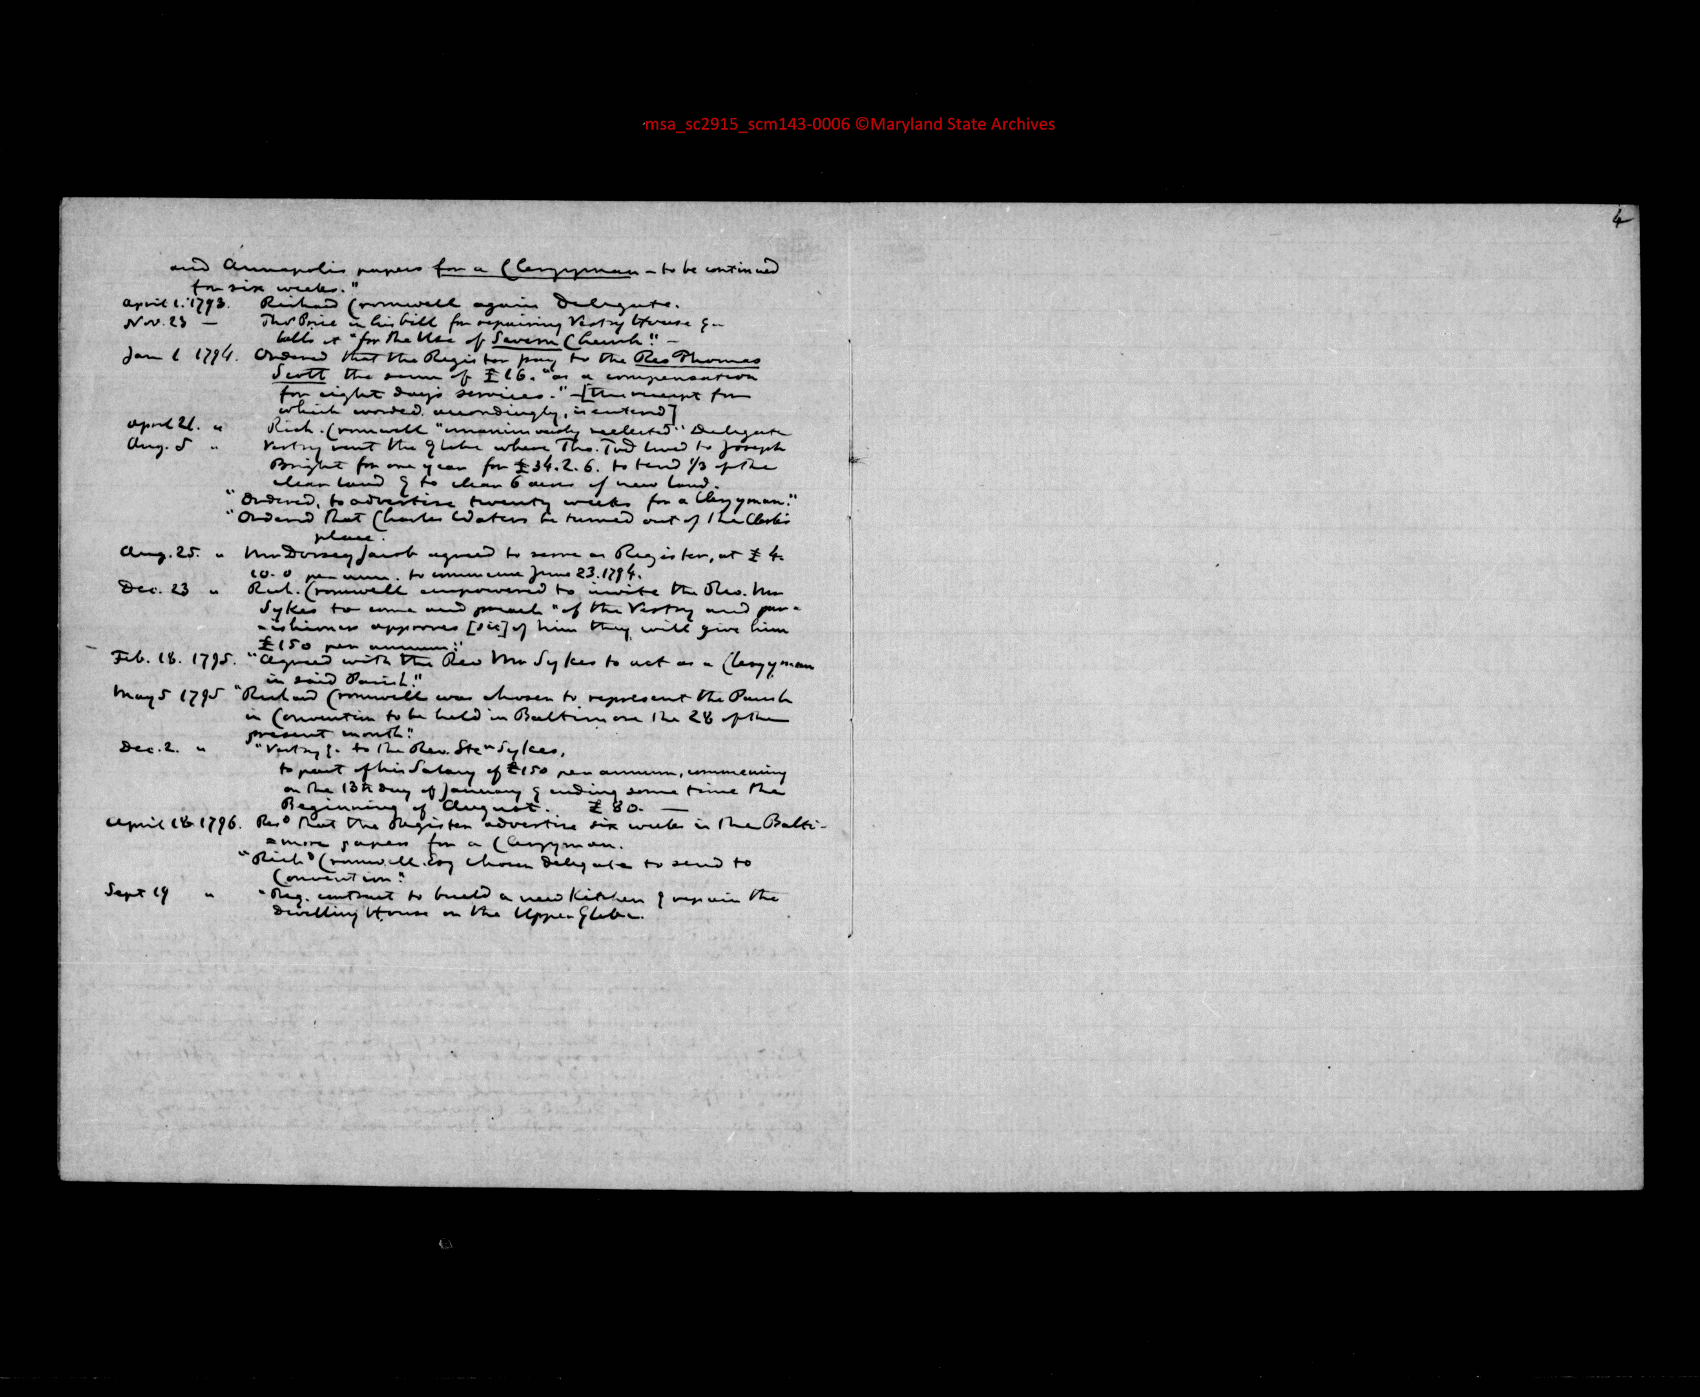 msa_sc2915_scm143-0006 ©Maryland State Archives
4
and Annapolis papers for a Clergyman - to be continued
for six weeks."
April 1. 1793. Richard Cromwell again Delegate.
Nov. 23 — Thos Price in his bill for repairing Vestry House &
calls it "for the Use of Severn Church". —
Jan 1 1794. Ordered that the Register pay to the Rev Thomas
Scott the sum of £16. "as a compensation
for eight days services." - [the receipt from
which worded accordingly, is entered]
April 21. " Rich. Cromwell "unanimously reelected" Delegate
Aug. 5 " Vestry rent the glebe where Tho. Tud lived to Joseph
Bright for one year for £34. 2. 6. to tend 1/3 of the
clear land & to clear 6 acres of new land.
"Ordered, to advertise twenty weeks for a Clergyman."
"Ordered that Charles Waters be turned out of the Clerk's
place.
Aug. 25. " Mr Dorsey Jacob agreed to serve as Register, at £4.
10. 0 per ann. to commence June 23. 1794.
Dec. 23 " Rich. Cromwell empowered to invite the Rev. Mr
Sykes to come and preach "if the Vestry and par-
-ishioners approves [sic] of him they will give him
£150 per annum."
Feb. 18. 1795. "Agreed with the Rev Mr Sykes to act as a Clergyman
in said Parish."
May 5 1795 "Richard Cromwell was chosen to represent the Parish
in Convention to be held in Baltimore the 28 of the
present month."
Dec. 2. " "Vestry &. to the Rev. Sten Sykes,
to part of his Salary of £150 per annum, commencing
on the 13th day of January & ending some time the
Beginning of August. £80. —
April 18 1796. Resd that the Register advertise six weeks in the Balti-
=more papers for a Clergyman.
"Richd Cromwell. Esq chosen delegate to send to
Convention."
Sept 19 " "Reg. contract to build a new Kitchen & repair the
dwelling House on the Upper Glebe.